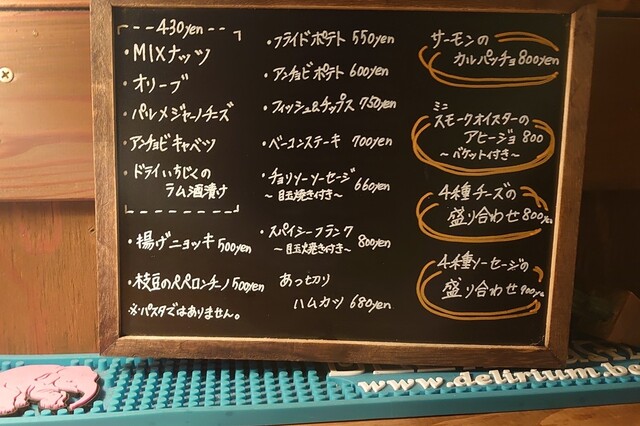 430yen
・MIXナッツ
・オリーブ
・パルメジャーノチーズ
・アンチョビキャベツ
・ドライいちじくの
ラム酒漬け
・揚げニョッキ 500yen
・枝豆のペペロンチーノ 500yen
※パスタではありません。
・フライドポテト 550yen
・アンチョビポテト 600yen
・フィッシュ&チップス 750yen
・ベーコンステーキ 700yen
・チョリソーソーセージ
~目玉焼き付き~ 660yen
・スパイシーフランク
~目玉焼き付き~ 800yen
あつ切り
ハムカツ 680yen
サーモンの
カルパッチョ 800yen
ミニ
スモークオイスターの
アヒージョ 800
~バゲット付き~
4種チーズの
盛り合わせ 800yen
4種ソーセージの
盛り合わせ 900yen
www.delirium.be